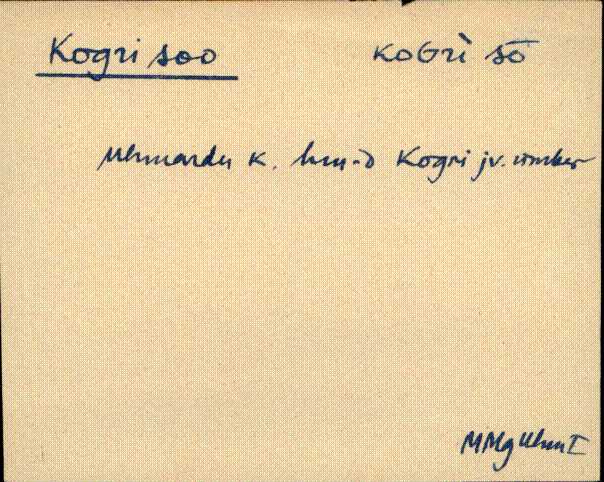 Kogri soo KOGRÌ SŌ
Uhmardu K. Kogri jv. ümber
MMg Uhm I